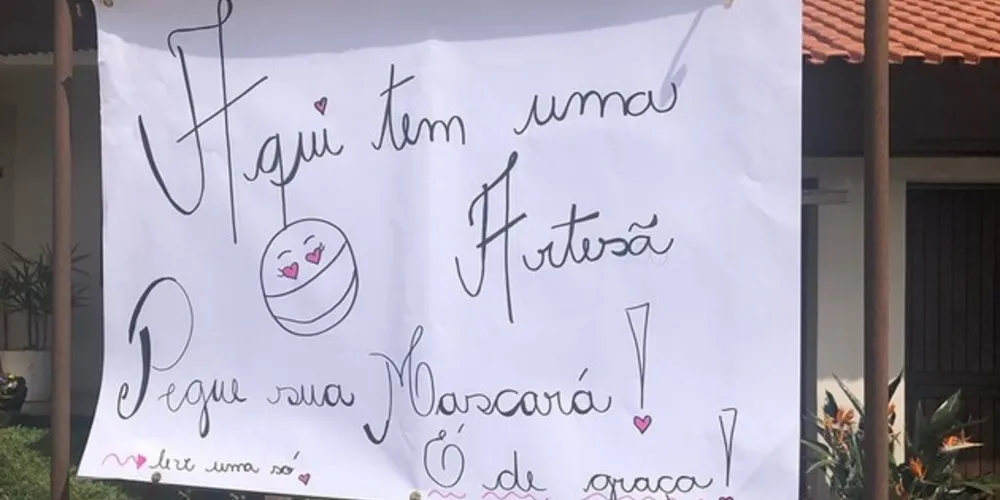 Aqui tem uma
Artesã
Pegue sua Mascará!
leve uma só
É de graça!